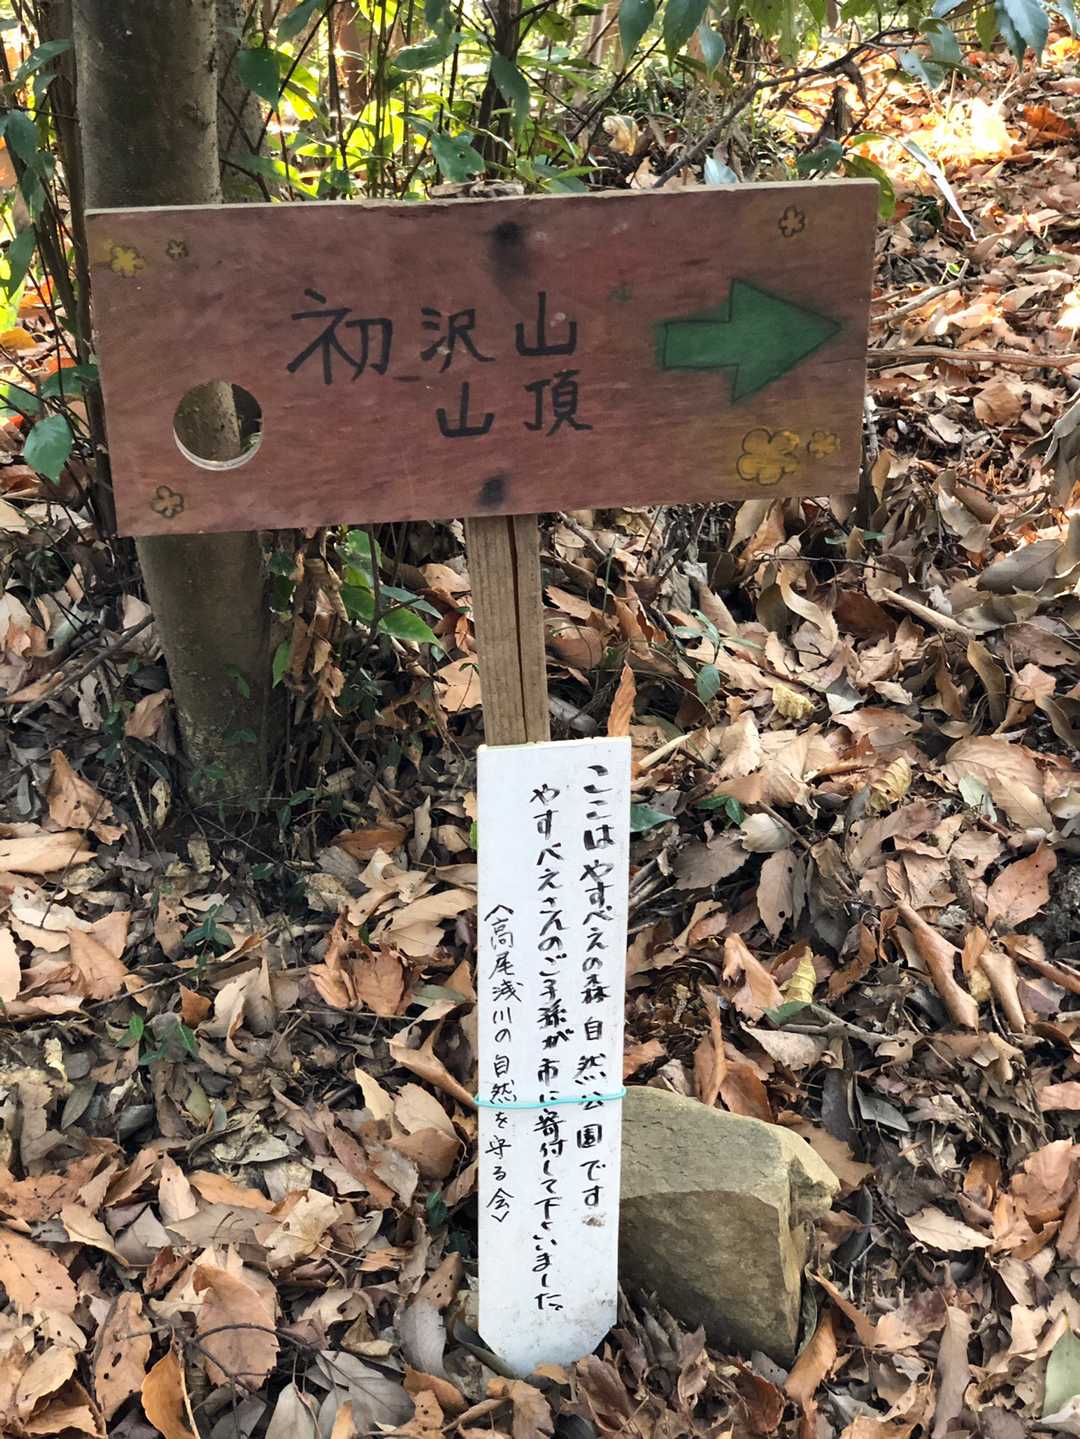 初沢山
山頂
ここはやすべえの森自然公園です
やすべえさんのご子孫が市に寄付して下さいました。
〈高尾浅川の自然を守る会〉